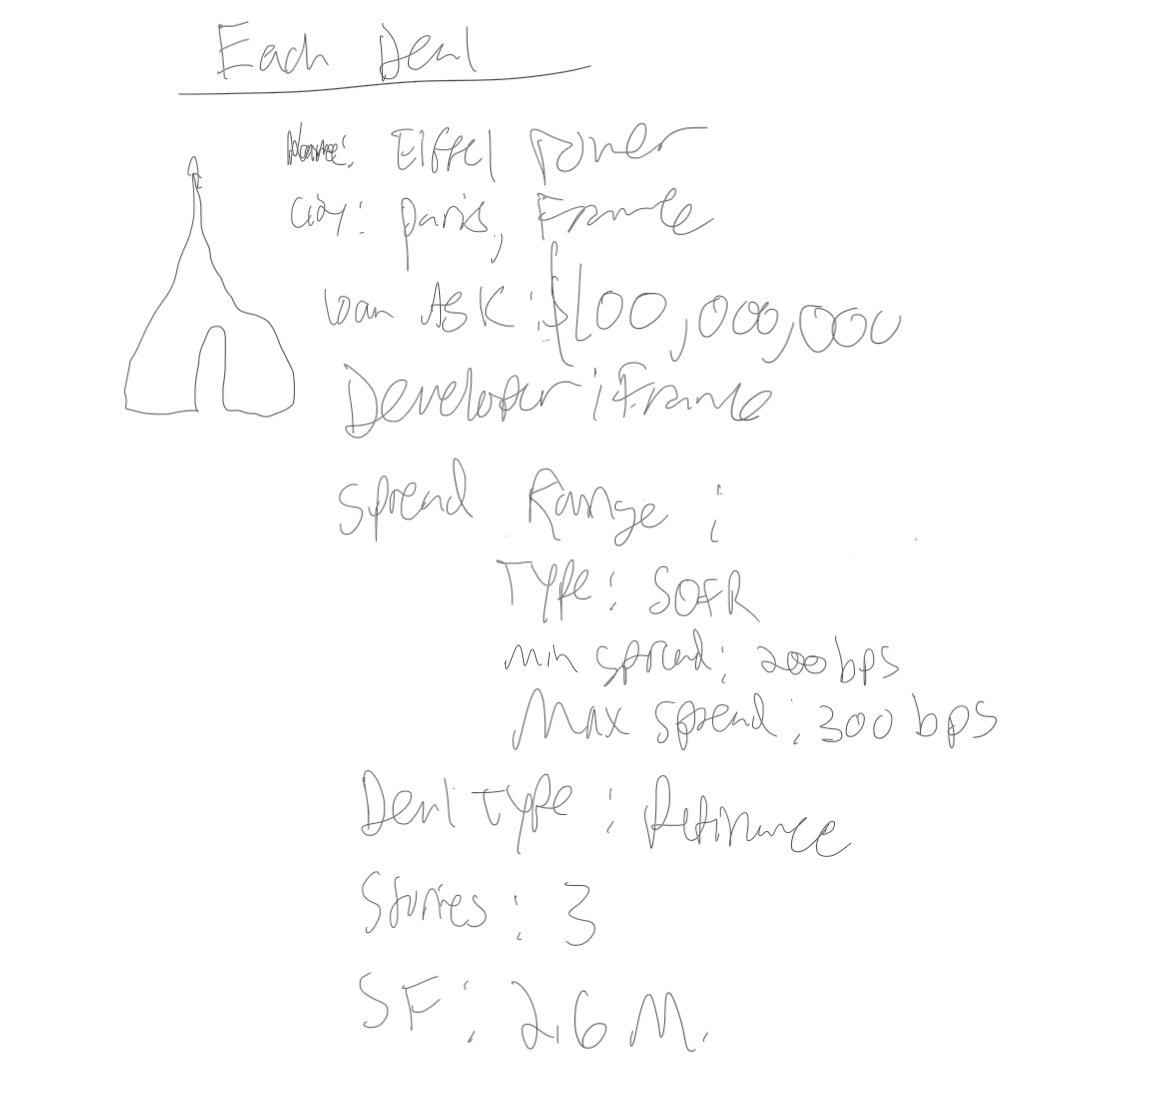 Each Deal
Name: Eiffel Tower
City: Paris, France
Loan Ask: $100,000,000
Developer: France
Spread Range:
Type: SOFR
Min spread: 200 bps
Max spread: 300 bps
Deal Type: Refinance
Stories: 3
SF: 2.6 M.